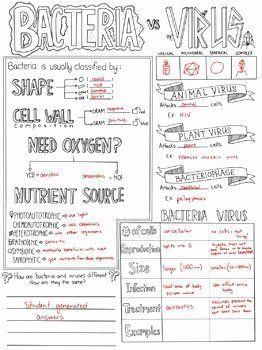 BACTERIA vs VIRUS
HELICAL POLYHEDRAL SPHERICAL COMPLEX
Bacteria is usually classified by:
SHAPE
round
rod
spiral
CELL WALL
composition
GRAM negative
red
GRAM positive
NEED OXYGEN?
YES = aerobic
NO = anaerobic
NUTRIENT SOURCE
PHOTOAUTOTROPHIC → use light
CHEMOAUTOTROPHIC → use chemicals
HETEROTROPHIC → other organisms
PATHOGENIC → parasitic
SYMBIOTIC → mutually beneficial with host
SAPROTROPHIC → get nutrients from dead organisms
? How are bacteria and viruses different? How are they the same?
Student generated
answers
ANIMAL VIRUS
Attacks animal cells
Ex HIV
PLANT VIRUS
Attacks plant cells
Ex Tobacco mosaic virus
BACTERIOPHAGE
Attacks cells
Ex
BACTERIA VIRUS
# of cells unicellular no cells not living
Reproduction splits into 2
Size larger (1000 nm) smaller
Infection local area of body can affect entire body
Treatment antibiotics vaccines prevent the spread of viruses
Examples